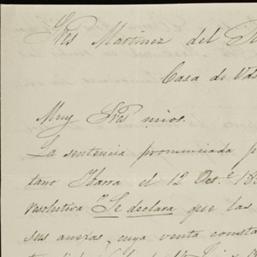 Sres Martinez del
Casa de Uds
Muy Sres mios.
La sentencia pronunciada p
tano Ibarra el 12 Oct.e 18
resolutiva "Se declara que las
sus anexas, cuya venta consta